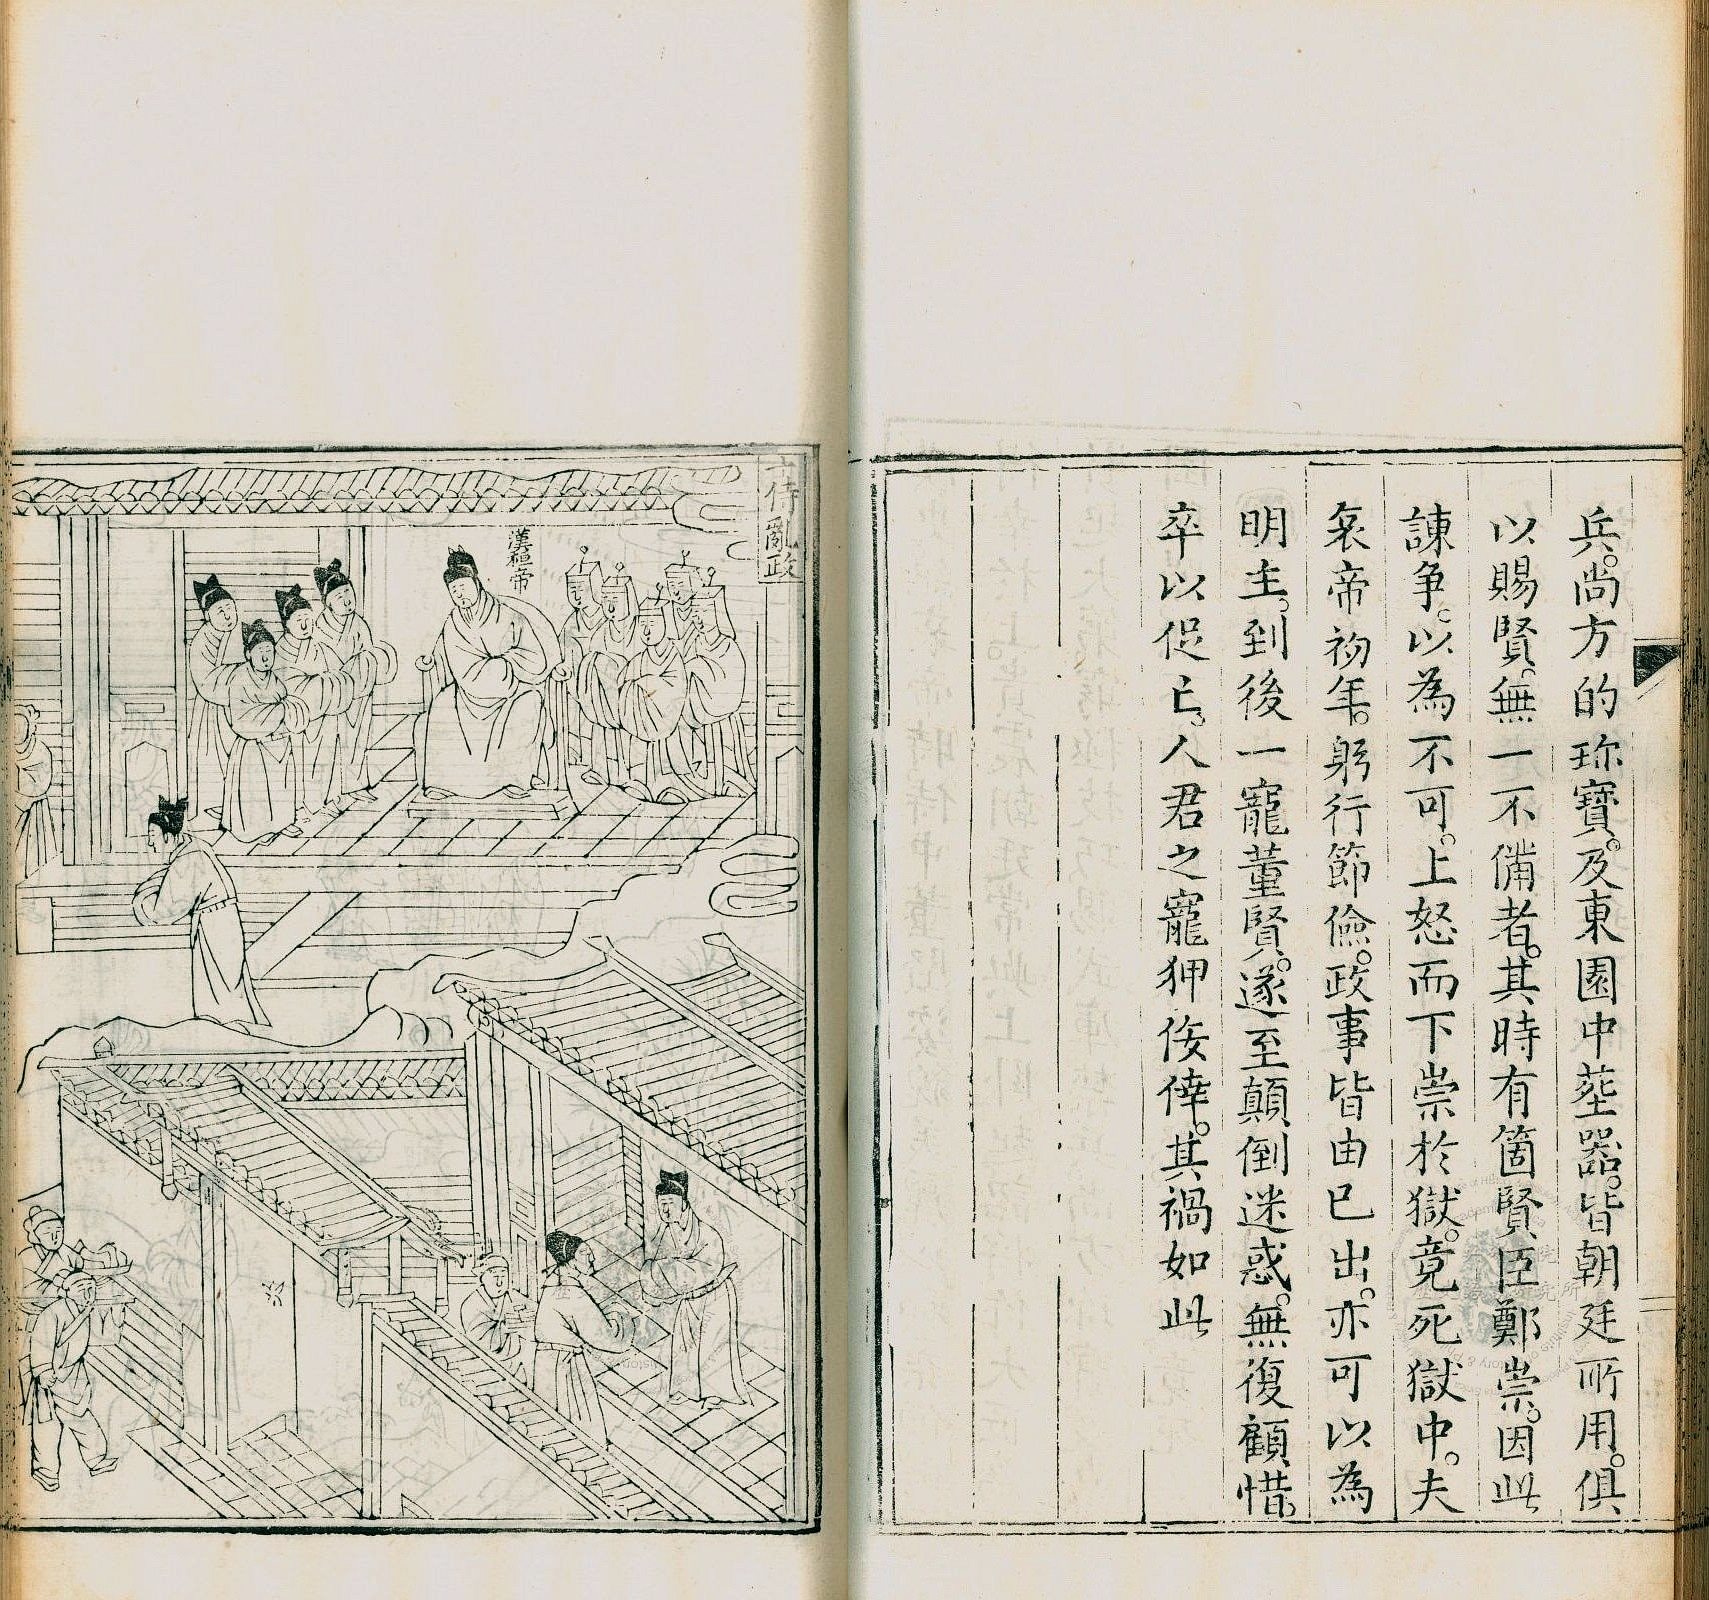 兵。尚方的珎寶。及東園中塟器。皆朝廷所用。俱
以賜賢。無一不備者。其時有箇賢臣鄭崇。因此
諫争。以為不可。上怒而下崇於獄。竟死獄中。夫
哀帝初年。躬行節儉。政事皆由已出。亦可以為
明主。到後一寵董賢。遂至顛倒迷惑。無復顧惜。
卒以促亡。人君之寵狎佞倖。其禍如此
侍亂政
漢桓帝